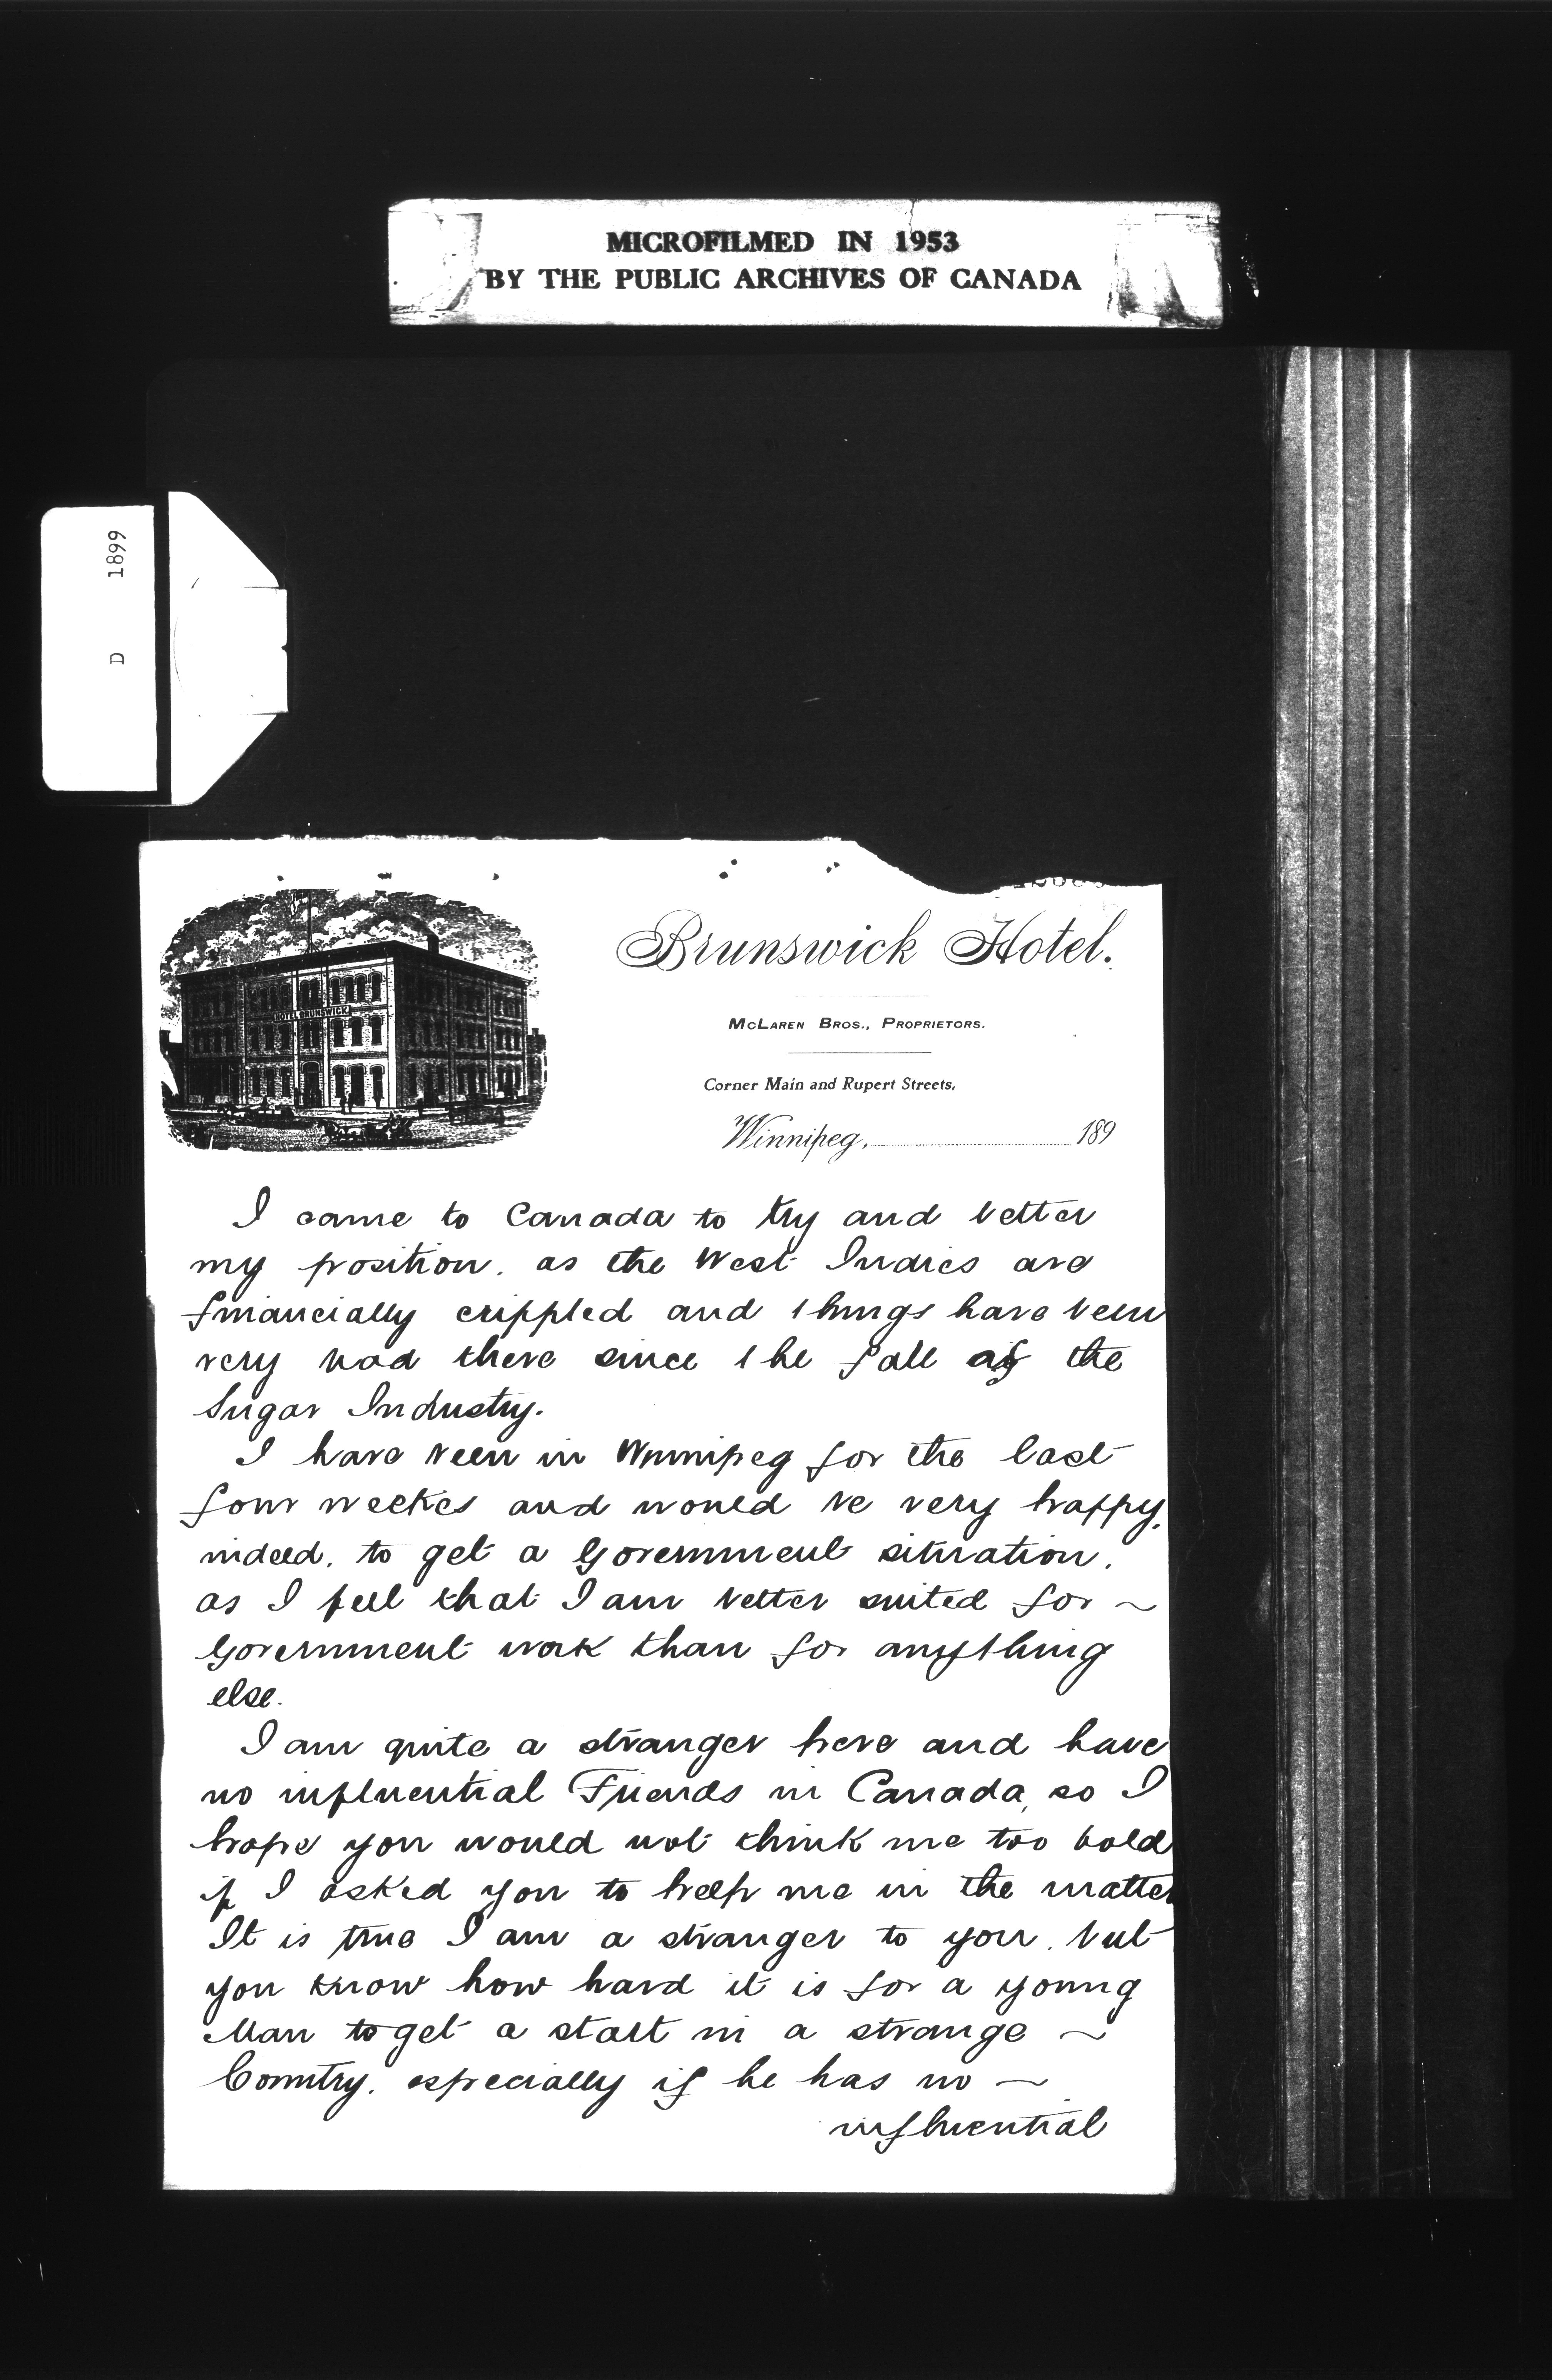 MICROFILMED IN 1953
BY THE PUBLIC ARCHIVES OF CANADA
D 1899
HOTEL BRUNSWICK
Brunswick Hotel.
McLaren Bros., Proprietors.
Corner Main and Rupert Streets,
Winnipeg, 189
I came to Canada to try and better
my position, as the West Indies are
financially crippled and things have been
very bad there since the fall of the
Sugar Industry.
I have been in Winnipeg for the last
four weekes and would be very happy,
indeed, to get a Government situation,
as I feel that I am better suited for ~
Government work than for anything
else.
I am quite a stranger here and have
no influential Friends in Canada, so I
hope you would not think me too bold
if I asked you to help me in the matter
It is true I am a stranger to you, but
you know how hard it is for a young
Man to get a start in a strange ~
Country, especially if he has no ~
influential